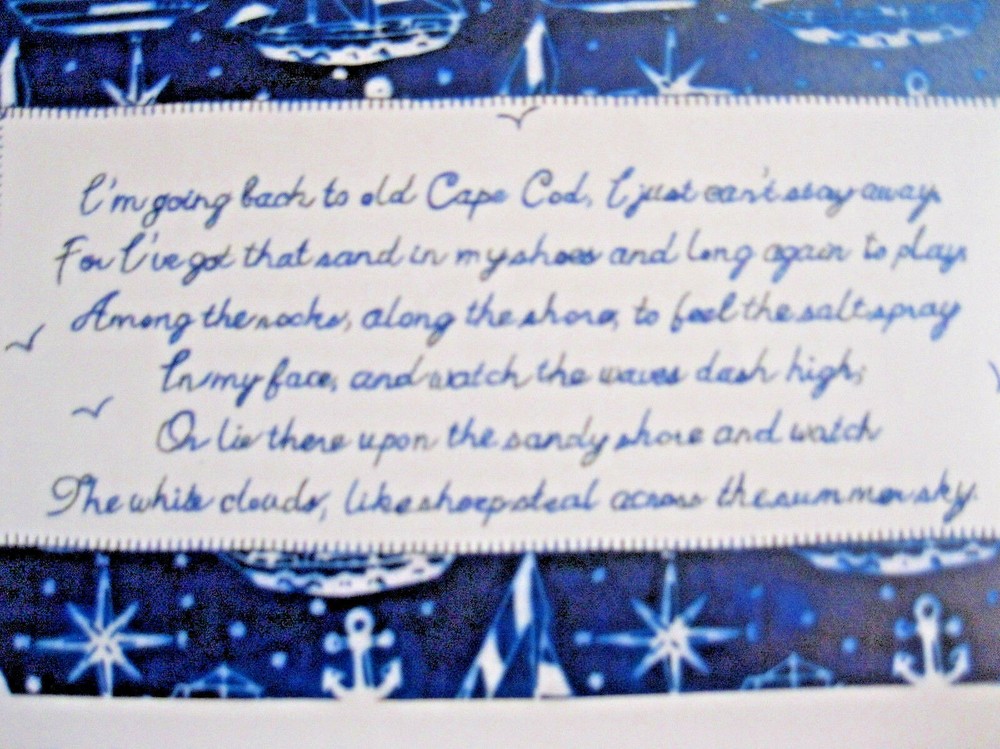 I'm going back to old Cape Cod, I just can't stay away.
For I've got that sand in my shoes and long again to play.
Among the rocks, along the shore, to feel the salt spray
In my face, and watch the waves dash high;
Or lie there upon the sandy shore and watch
The white clouds, like sheep steal across the summer sky.